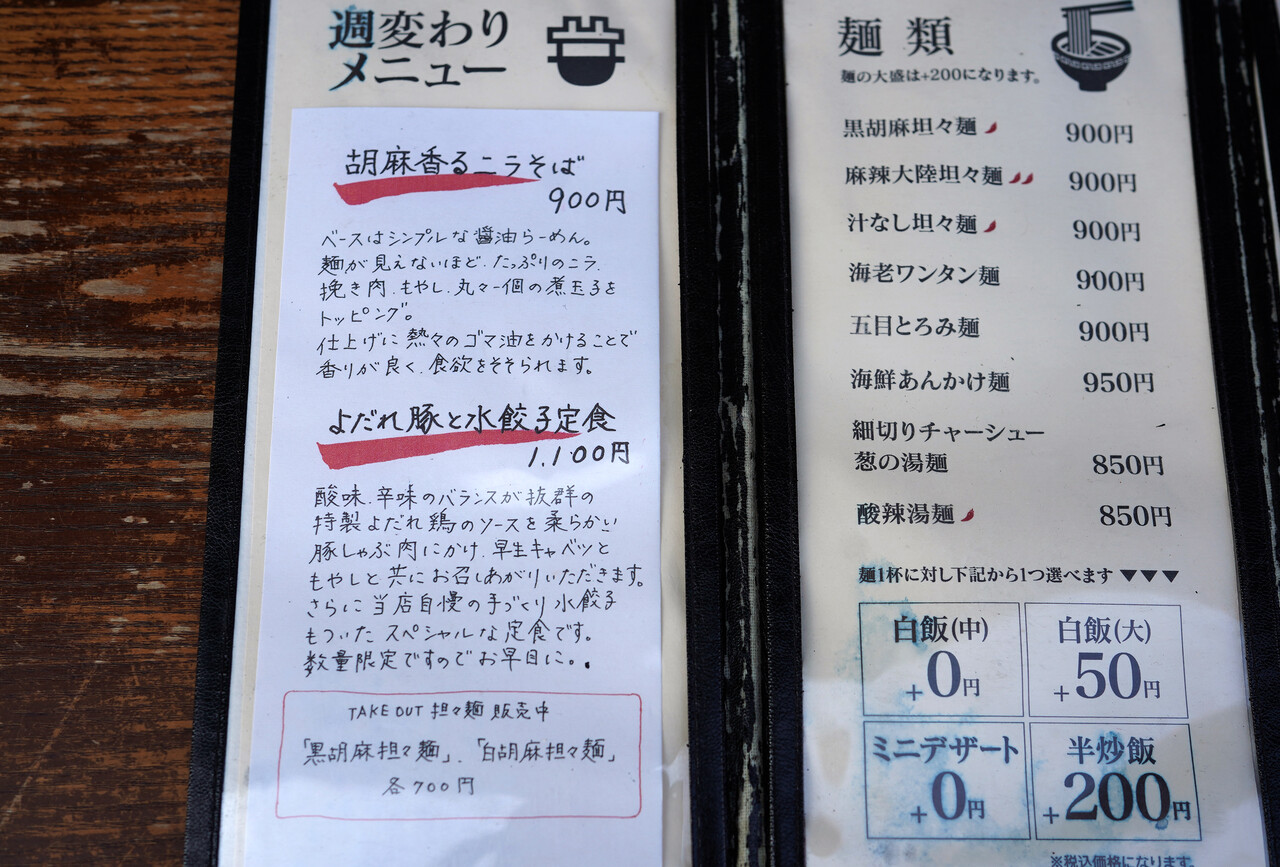 週変わり
メニュー
胡麻香るニラそば
900円
ベースはシンプルな醤油らーめん。
麺が見えないほど、たっぷりのニラ、
挽き肉、もやし、丸々一個の煮玉子を
トッピング。
仕上げに熱々のゴマ油をかけることで
香りが良く、食欲をそそられます。
よだれ豚と水餃子定食
1,100円
酸味、辛味のバランスが抜群の
特製よだれ鶏のソースを柔らかい
豚しゃぶ肉にかけ、早生キャベツと
もやしと共にお召しあがりいただきます。
さらに当店自慢の手づくり水餃子
もついたスペシャルな定食です。
数量限定ですのでお早目に。
TAKE OUT 担々麺 販売中
「黒胡麻担々麺」、「白胡麻担々麺」
各700円
麺類
麺の大盛は+200になります。
黒胡麻坦々麺 900円
麻辣大陸坦々麺 900円
汁なし坦々麺 900円
海老ワンタン麺 900円
五目とろみ麺 900円
海鮮あんかけ麺 950円
細切りチャーシュー
葱の湯麺 850円
酸辣湯麺 850円
麺1杯に対し下記から1つ選べます ▼▼▼
白飯(中)
+0円
白飯(大)
+50円
ミニデザート
+0円
半炒飯
+200円
※税込価格になります。